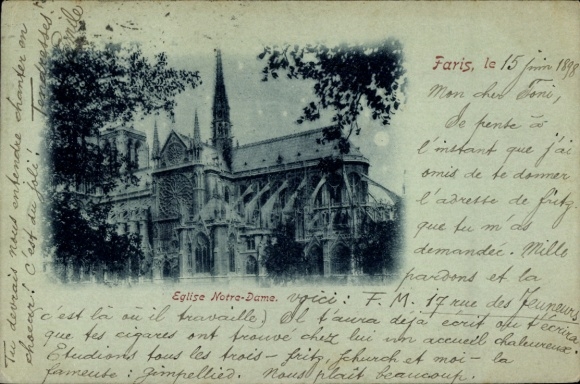 Paris, le 15 juin 1898
Mon cher Toni,
Je pense à
l'instant que j'ai
omis de te donner
l'adresse de fritz
que tu m'as
demandée. Mille
pardons et la
Eglise Notre-Dame.
voici : F. M. 17 rue des Jeuneurs
(c'est là où il travaille) Il t'aura déjà écrit ou t'écrira
que tes cigares ont trouvé chez lui un accueil chaleureux.
Etudions tous les trois - fritz, Schurch et moi - la
fameuse : Gimpellied. Nous plaît beaucoup.
Tu devrais nous entendre chanter en
choeur! C'est du joli!
Mille
tendresses